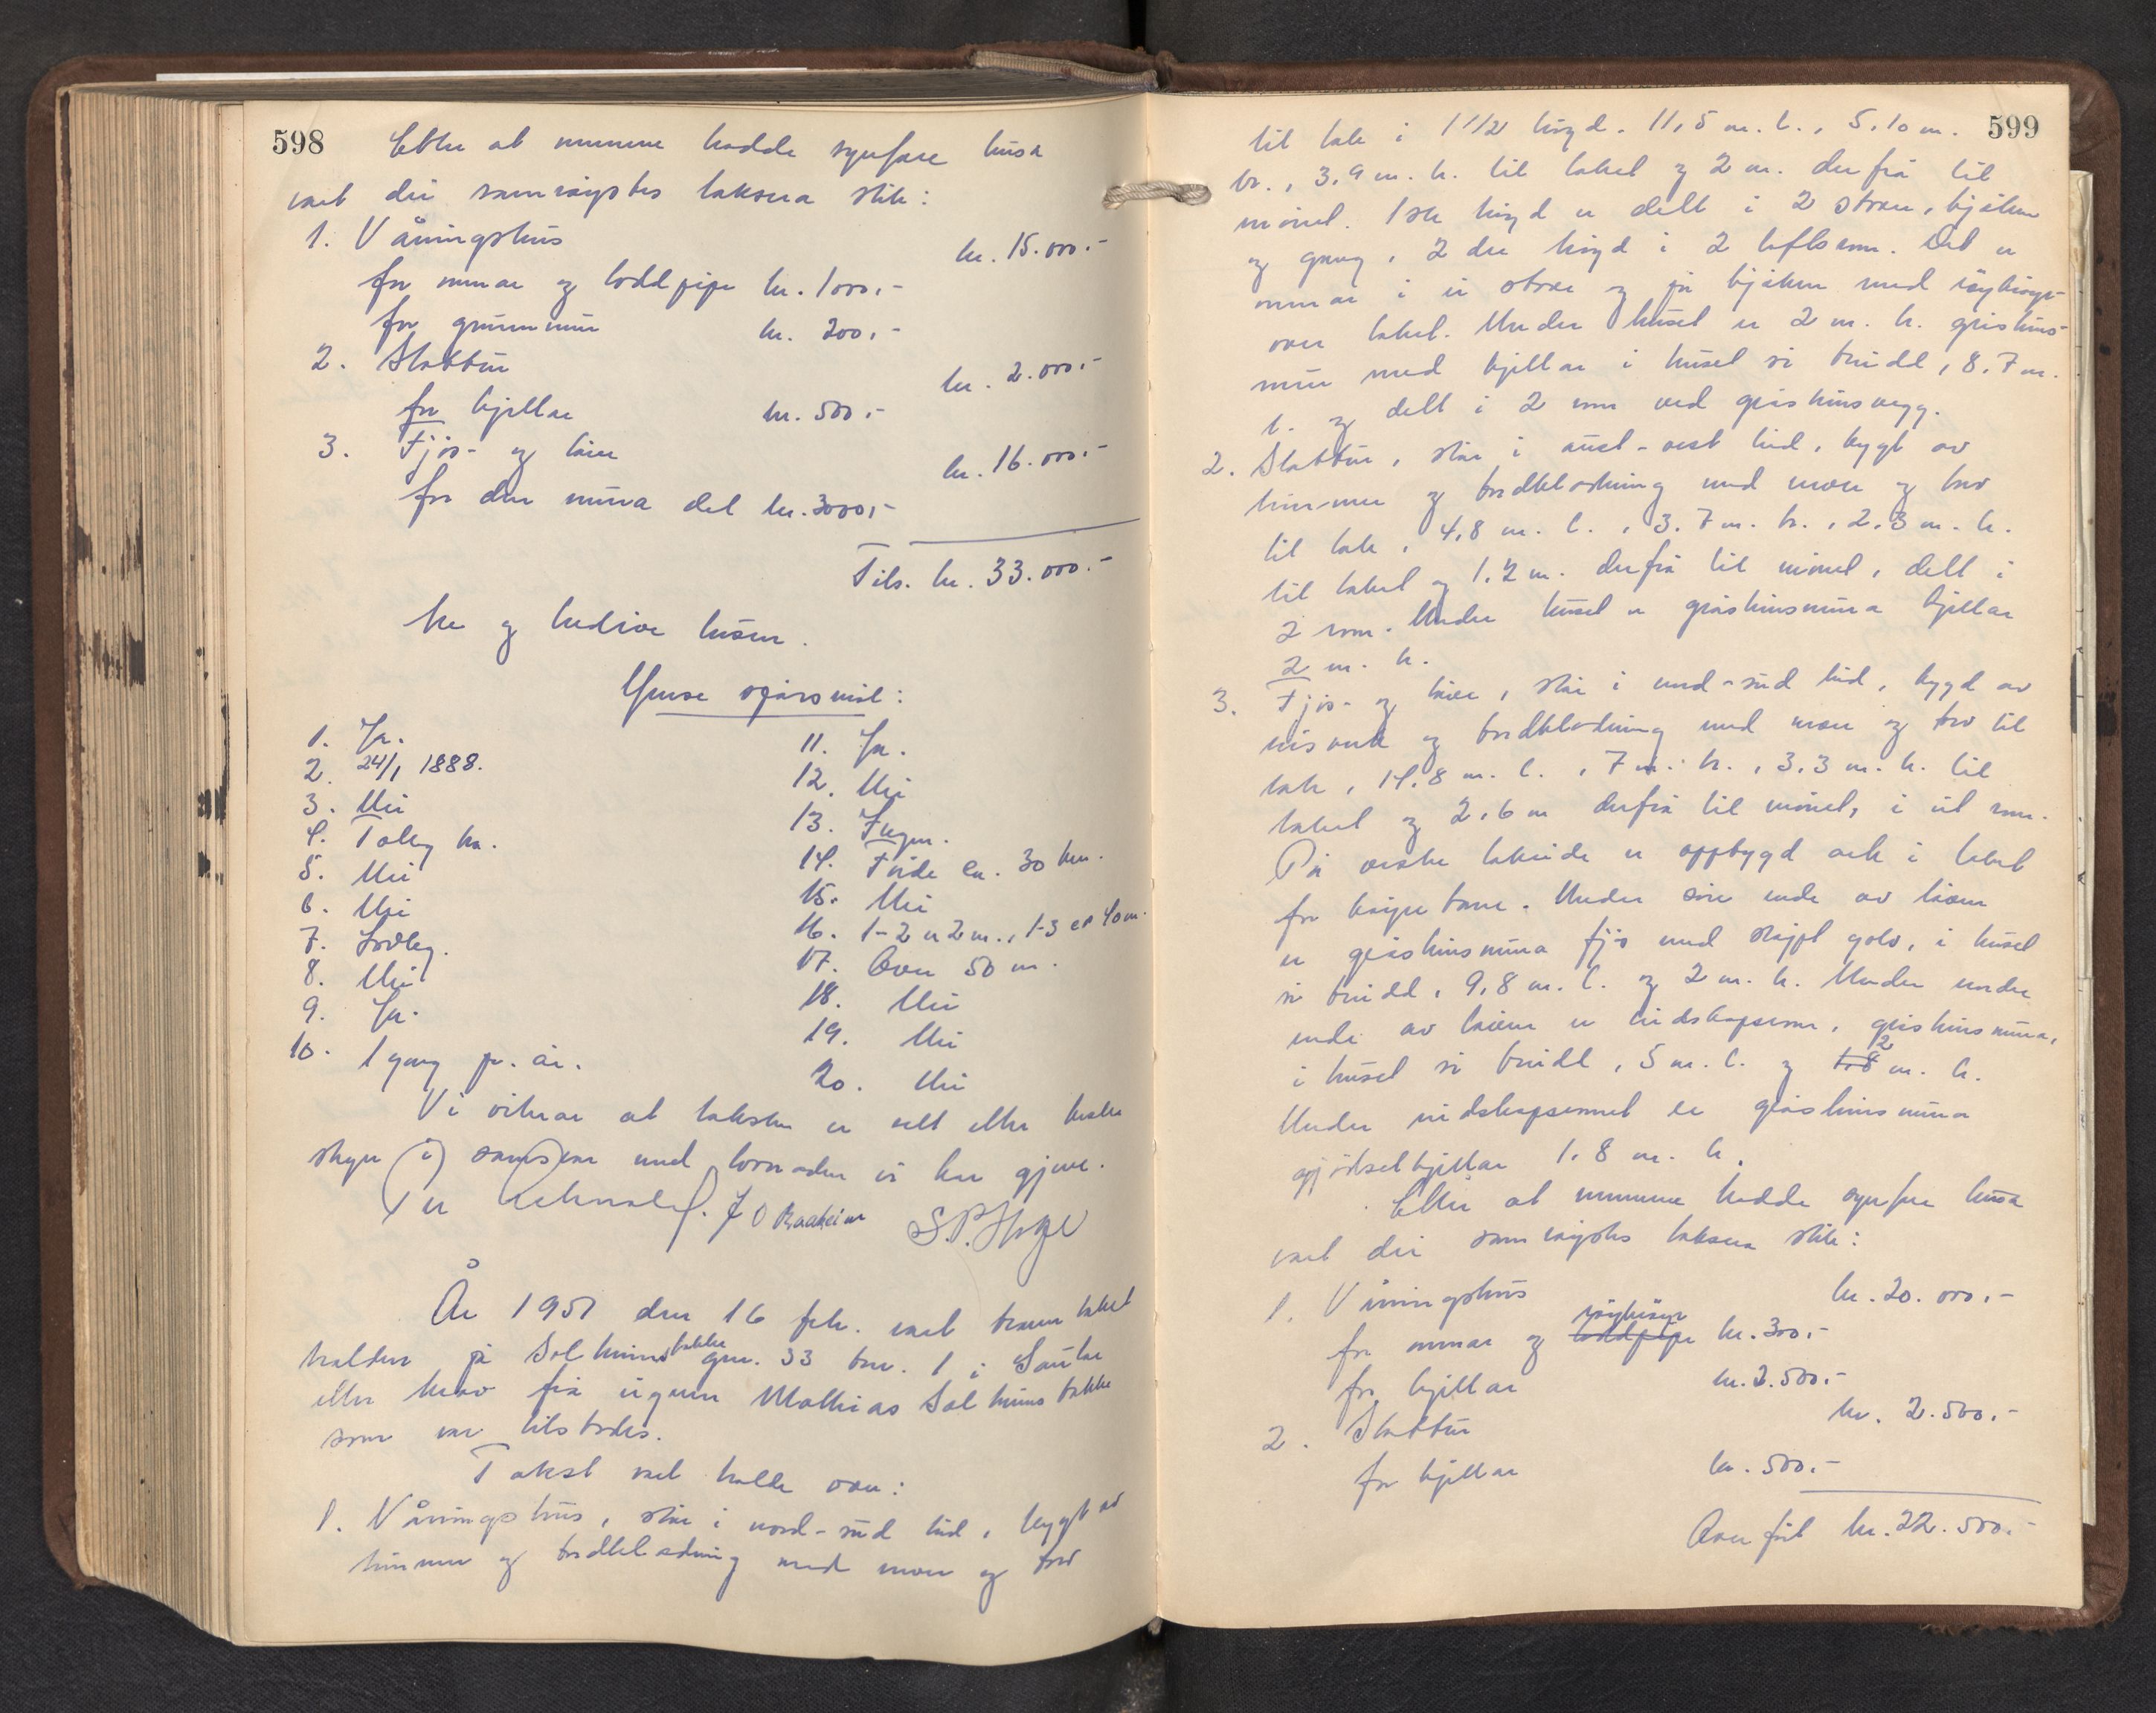 598
Etter at mennene hadde synfare husa
vart dei samrøystes taksera slik:
1. Våningshus kr. 15.000.-
for omnar og loddpipe kr. 1000,-
for grunnmur kr. 200,-
2. Stabbur kr. 2.000.-
for kjellar kr. 500.-
3. Fjøs- og løe kr. 16.000.-
for den mura del kr. 3000,-
Tils. kr. 33.000.-
Tre og tredive tusen.
Ymse spørsmål:
1. Ja.
2. 24/1 1888.
3. Nei
4. Toleg bra.
5. Nei
6. Nei
7. Lovleg.
8. Nei
9. Ja.
10. 1 gong pr. år.
11. Ja.
12. Nei
13. Ingen.
14. Førde ca. 30 km.
15. Nei
16. 1-2 er 2 m., 1-3 er 40 m.
17. Over 50 m.
18. Nei
19. Nei
20. Nei
Vi vitnar at taksten er sett etter beste
skyn i samsvar med lovnaden vi har gjeve.
J O Raaheim S. P.
År 1951 den 16 feb. vart brann takst
halden på Solheimsbakke gnr. 33 bnr. 1 i Gaular
etter krav frå eigaren Mathias Solheimsbakke
som var tilstades.
Takst vart halde over:
1. Våningshus, står i nord-sud leid, bygt av
timmer og bordkledning med mon og trod
599
til tak i 1 1/2 høgd. 11,5 m. l., 5,10 m.
br., 3,9 m. h. til taket og 2 m. derfrå til
mønet. 1ste høgd er delt i 2 stover, kjøken
og gang, 2 dre høgd i 2 loftsrom. Det er
omnar i ei stove og på kjøken med røykrøyr
over taket. Under huset er 2 m. h. gråsteins-
mur med kjellar i huset si breidd, 8.7 m.
l. og delt i 2 rom ved gråsteinsvegg.
2. Stabbur, står i aust-vest leid, bygt av
timmer og bordkledning med mon og trod
til tak, 4,8 m. l., 3.7 m. br., 2.3 m. h.
til taket og 1.2 m. derfrå til mønet, delt i
2 rom. Under huset er gråsteinsmura kjellar
2 m. h.
3. Fjøs- og løe, står i nord-sud leid, bygd av
reisverk og bordkledning med mon og trod til
tak, 14.8 m. l., 7 m. br., 3,3 m. h. til
taket og 2,6 m derfrå til mønet, i eit rom.
På vestre takside er oppbygd ark i taket
for køyrebane. Under søre ende av løen
er gråsteinsmura fjøs med støypt golv, i huset
si breidd, 9,8 m. l. og 2 m. h. Under nordre
ende av løen er reidskapsrom, gråsteinsmura,
i huset si breidd, 5 m. l. og 1.8 2 m. h.
Under reidskapsromet er gråsteinsmura
gjødselkjellar 1.8 m. h.
Etter at mennene hadde synfare husa
vart dei samrøystes taksera slik:
1. Våningshus kr. 20.000,-
for omnar og loddpipe røykrøyr kr. 300,-
for kjellar kr. 2.500.-
2. Stabbur kr. 2.500.-
for kjellar kr. 500.-
Overført kr. 22.500.-